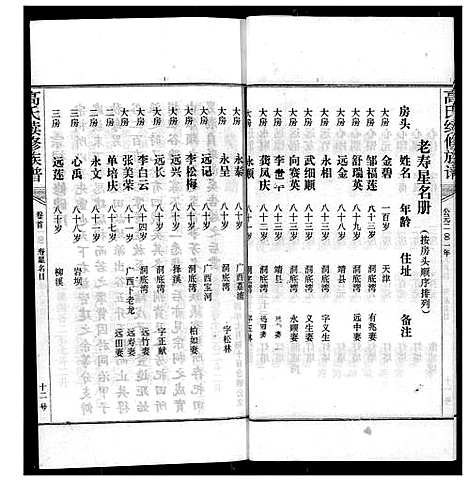 高氏续修族谱
公元二〇一一年
老寿星名册（按房头顺序排列）
房头 姓名 年龄 住址 备注
大房 金碧 一百岁 天津
大房 邹福莲 八十六岁 洞底湾 有兆妻
大房 舒瑞英 八十九岁 洞底湾 远中妻
大房 远金 八十三岁 靖县
大房 永相 八十三岁 洞底湾 字义生
大房 武细顺 八十三岁 洞底湾 义生妻
大房 向赛英 八十三岁 洞底湾 永顾妻
大房 李世 八十二岁 靖县
大房 龚凤庆 八十二岁 洞底湾 远田妻
大房 永顺 八十岁 洞底湾
大房 永泰 八十岁 广西
大房 永呈 八十岁 洞底湾 字松林
大房 远记 八十岁 广西宝河
二房 李松梅 八十岁 洞底湾 柏如妻
二房 远兴 八十岁 择溪
二房 远长 八十岁 洞底湾 字正献
二房 李白云 八十岁 洞底湾 远竹妻
二房 张美荣 八十一岁 广西下老龙 远寿妻
二房 单培庆 八十岁 洞底湾 远田妻
二房 永文 八十一岁
三房 心禹 八十八岁 岩坝
三房 远莲 八十岁 柳溪
高氏续修族谱
卷首
寿星名目
十二号